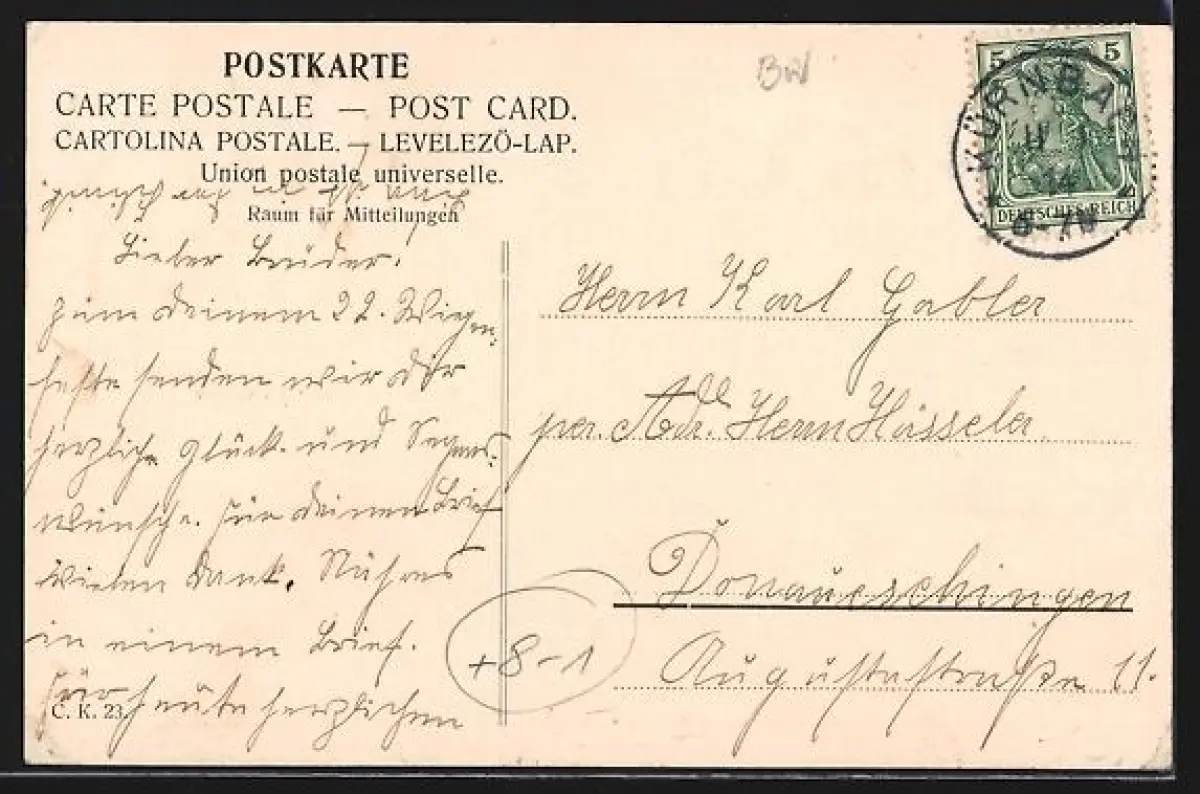 POSTKARTE
CARTE POSTALE — POST CARD.
CARTOLINA POSTALE. — LEVELEZÖ-LAP.
Union postale universelle.
Raum für Mitteilungen
Lieber Bruder!
Zum deinem 22. Wiegen-
feste senden wir dir
herzliche Glück- und Segens-
wünsche. Für deinen Brief
vielen Dank. Nähres
in einem Brief.
Für heute herzlichen
C. K. 23.
BW
5 5
DEUTSCHES REICH
KÜRNBACH
14
Herrn Karl Gabler
per. Adr. Herrn Hässeler
Donaueschingen
Augustastraße 11.
+8-1